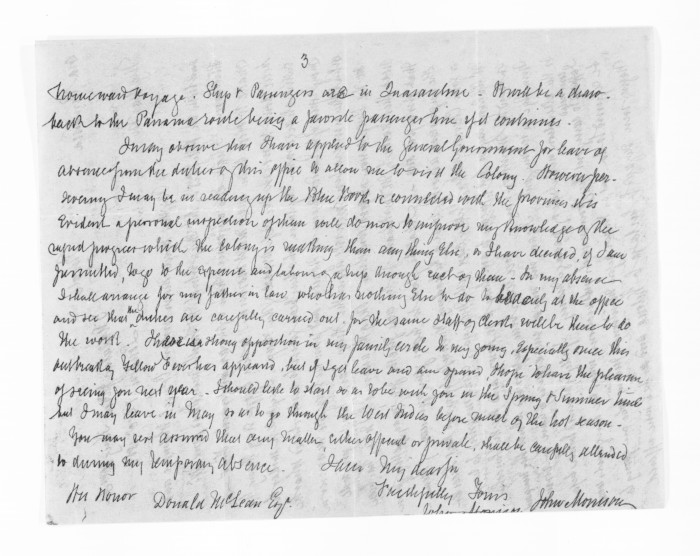 3
homeward voyage. Ship & Passengers are in Quarantine - It will be a draw-
back to the Panama route being a favorite passenger line if it continues.
I may observe that I have applied to the General Government for leave of
absence from the duties of this office to allow me to visit the Colony. However per-
severing I may be in reading up the Blue Books &c connected with the provinces it is
Evident a personal inspection of them will do more to improve my knowledge of the
rapid progress which the Colony is making than any thing Else, so I have decided, if I am
permitted, to go to the expense and labour of a trip through each of them - In my absence
I shall arrange for my father in law, who has nothing Else to do to be daily at the office
and see that the duties are carefully carried out, for the same staff of Clerks will be there to do
the work. I have a strong opposition in my family circle to my going, Especially since this
outbreak of Yellow Fever has appeared, but if I get leave and am spared I hope to have the pleasure
of seeing you next year - I should like to start so as to be with you in the Spring & Summer time
but I may leave in May so as to go through the West Indies before much of the hot season -
You may rest assured that any matter either official or private, shall be carefully attended
to during my temporary absence. I am My dear Sir
Faithfully Yours
His Honor Donald McLean Esqr. John Morrison
John Morrison